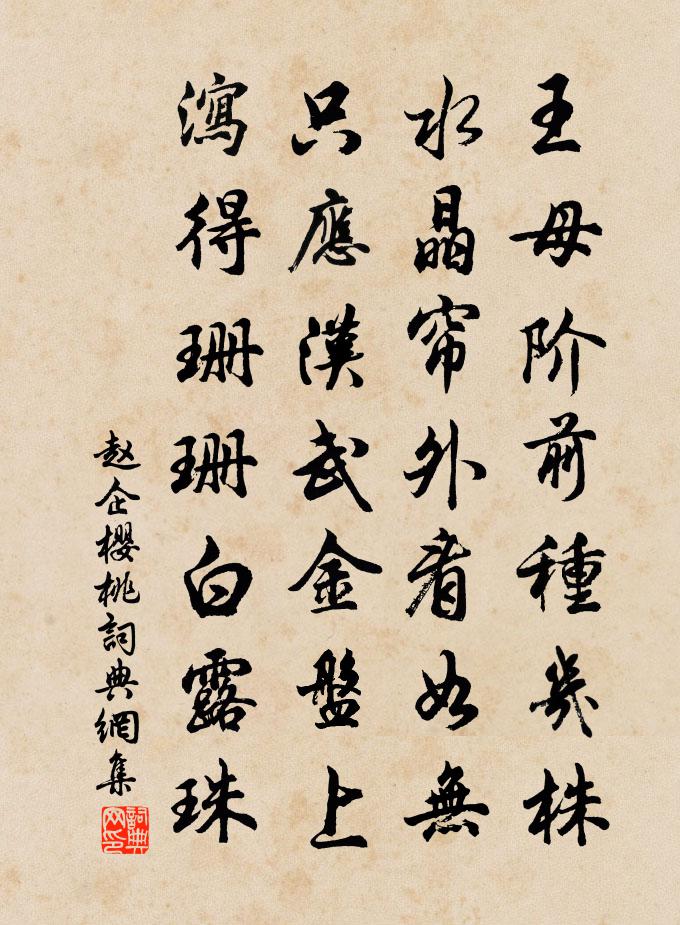 王母阶前種幾株
水晶帘外看如無
只應漢武金盤上
瀉得珊珊白露珠
赵企櫻桃詞典網集
詞典网印